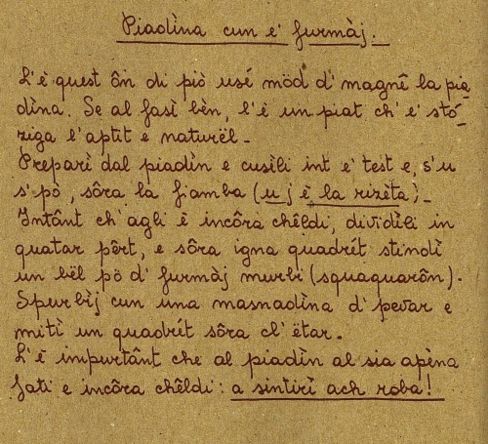 Piadìna cun e' furmàj.
L'è quest ôn di piò usé möd d' magnê la pia
dìna. Se al fasì bèn, l'è un piat ch' e' stó_
ziga l'aptit e naturël.
Preparì dal piadìn e cusìli int e' test e, s'u
s' pò, sôra la fiamba (u j è la rizëta)_
Intânt ch' agli è incôra chêldi, dividìli in
quatar pêrt, e sôra igna quadrét stindì
un bël pö d' furmàj murbi (squaquarôn).
Spurbìj cun una masnadìna d' pevar e
mitì un quadrét sôra cl' ëtar.
L'è impurtânt che al piadìn al sia apèna
fati e incôra chêldi: a sintirì ach roba!